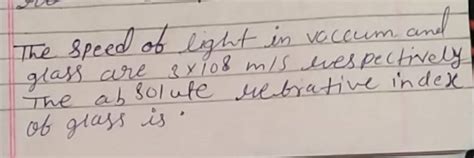 The speed of light in vaccum and
glass are 3x108 m/s respectively
The absolute refrative index
of glass is.